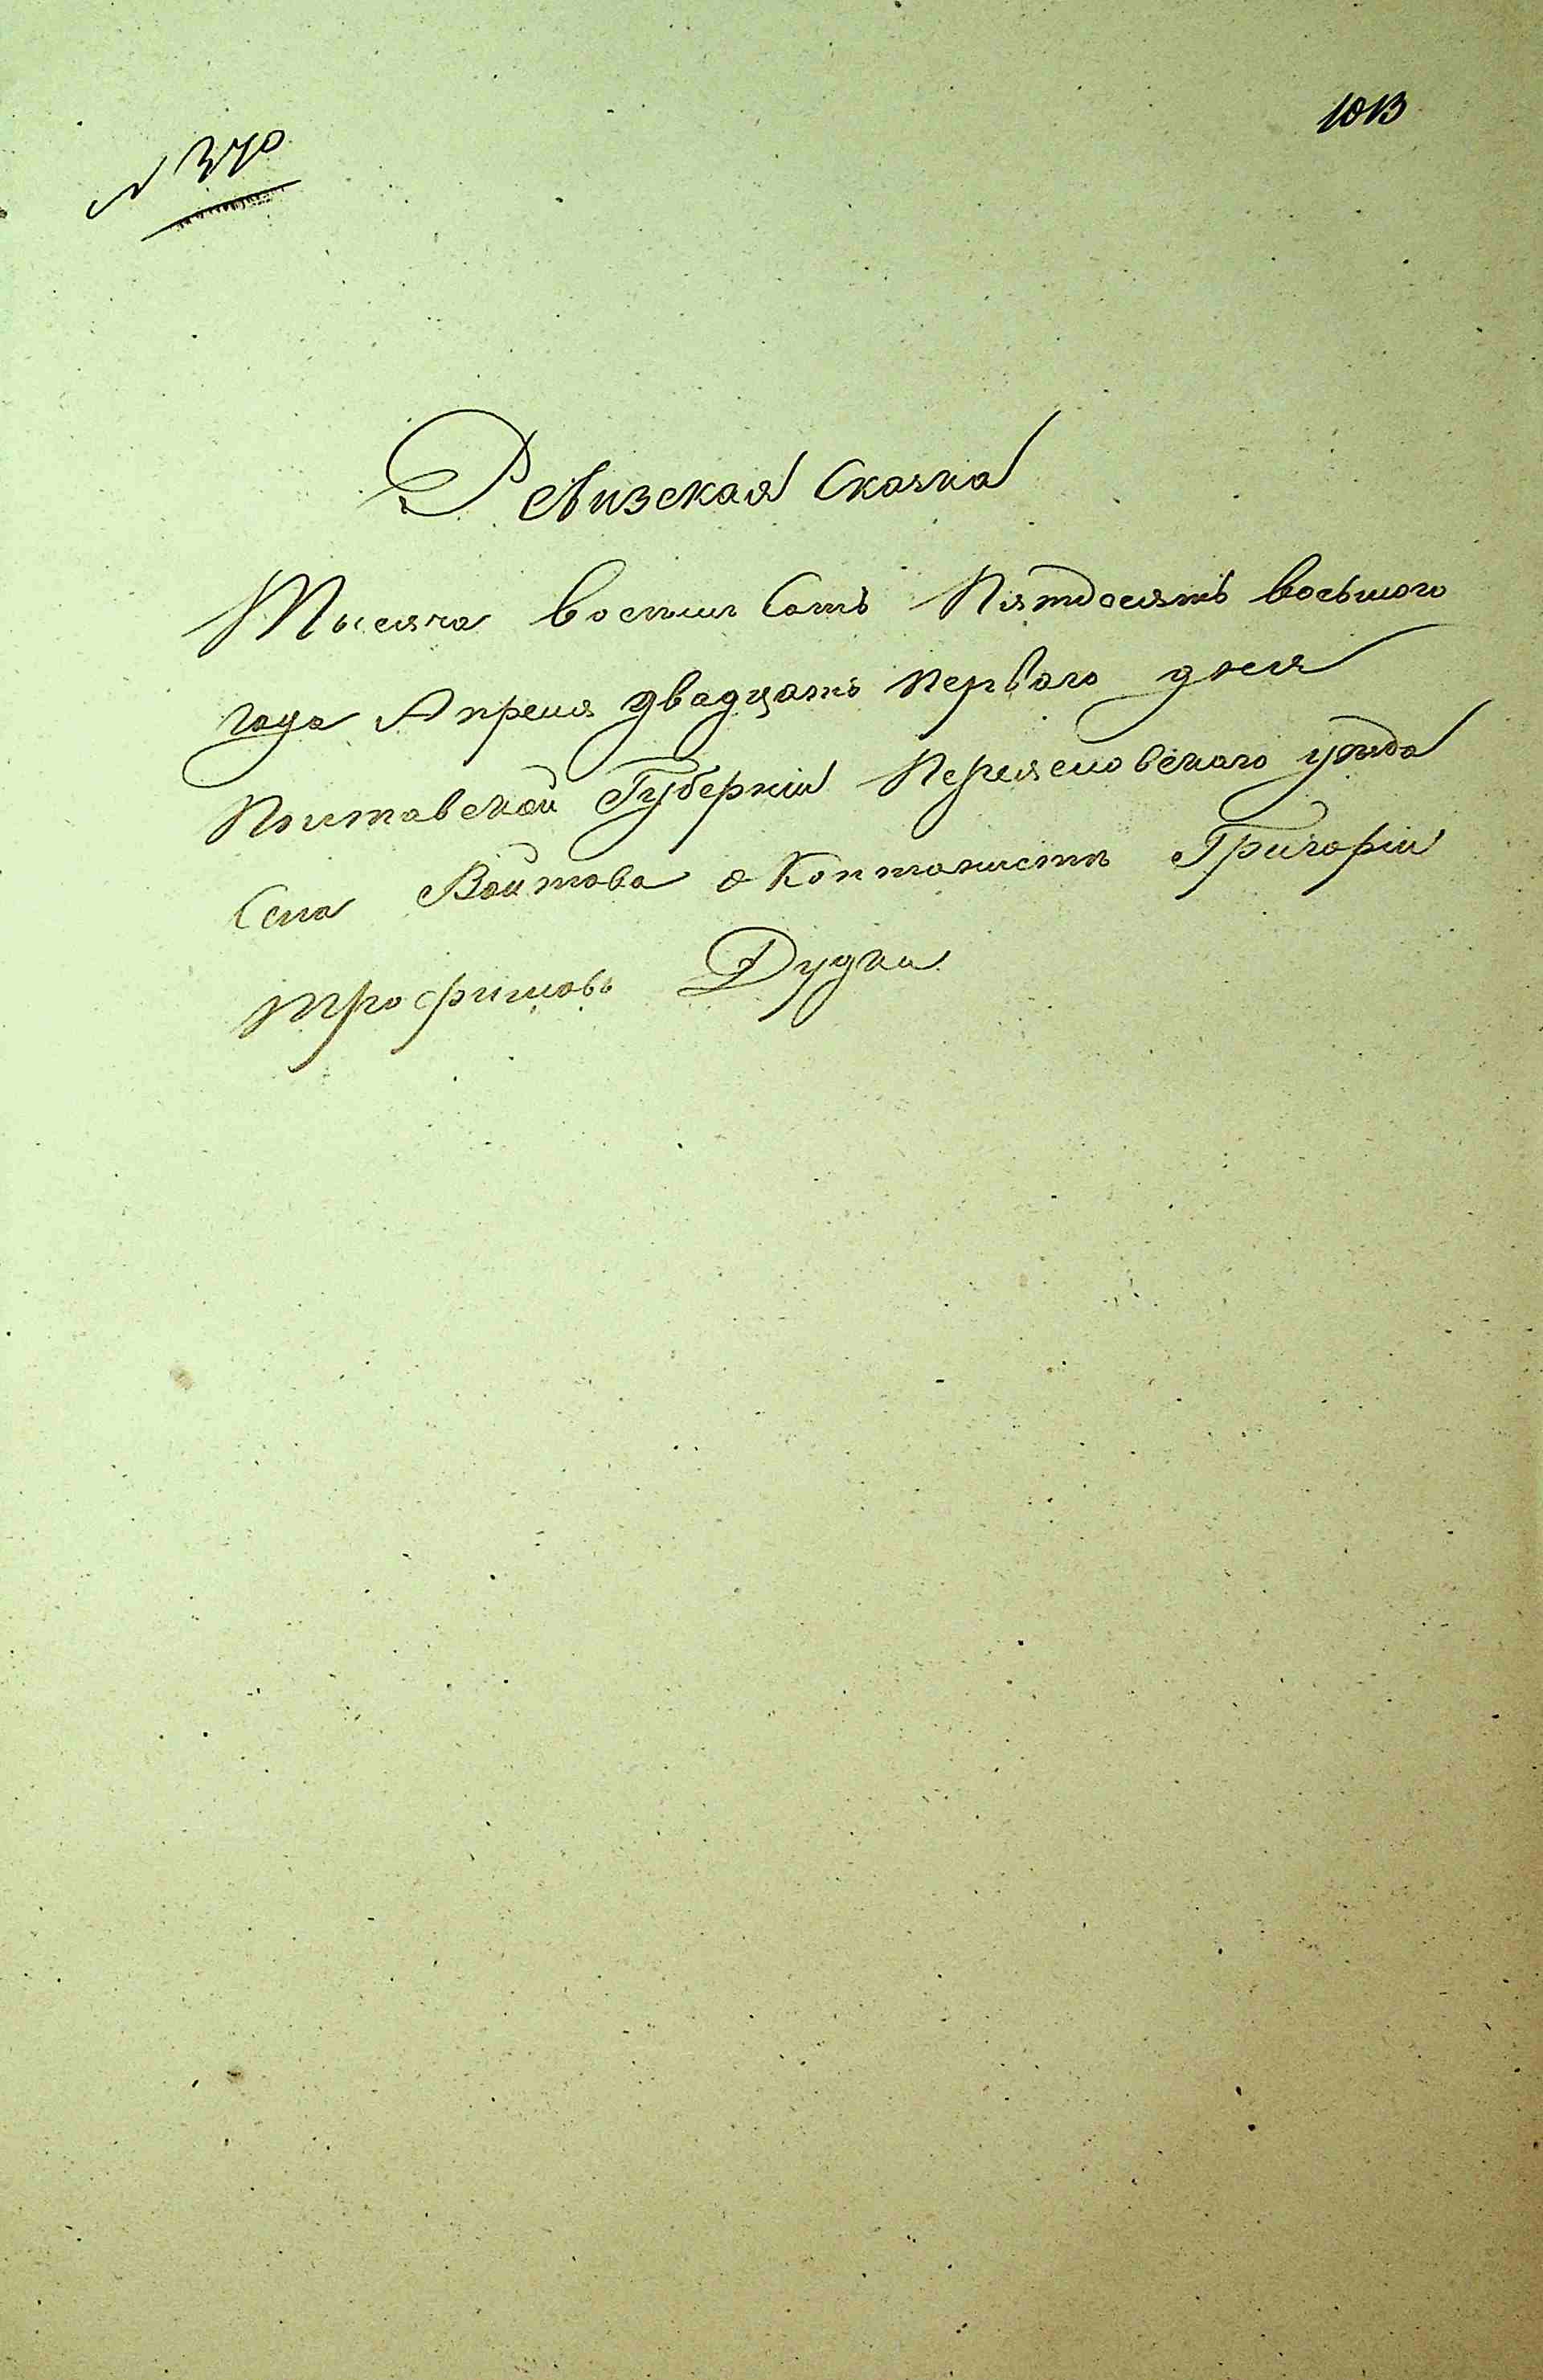 1013
N 370
Ревизская Сказка
Тысяча восемь Сотъ Пятдесятъ восьмого
года Апреля двадцать первого дня
Полтавской Губерніи Переясловского уезда
Села Войтова о Коптонисте Григоріи
трофимовъ Дудки